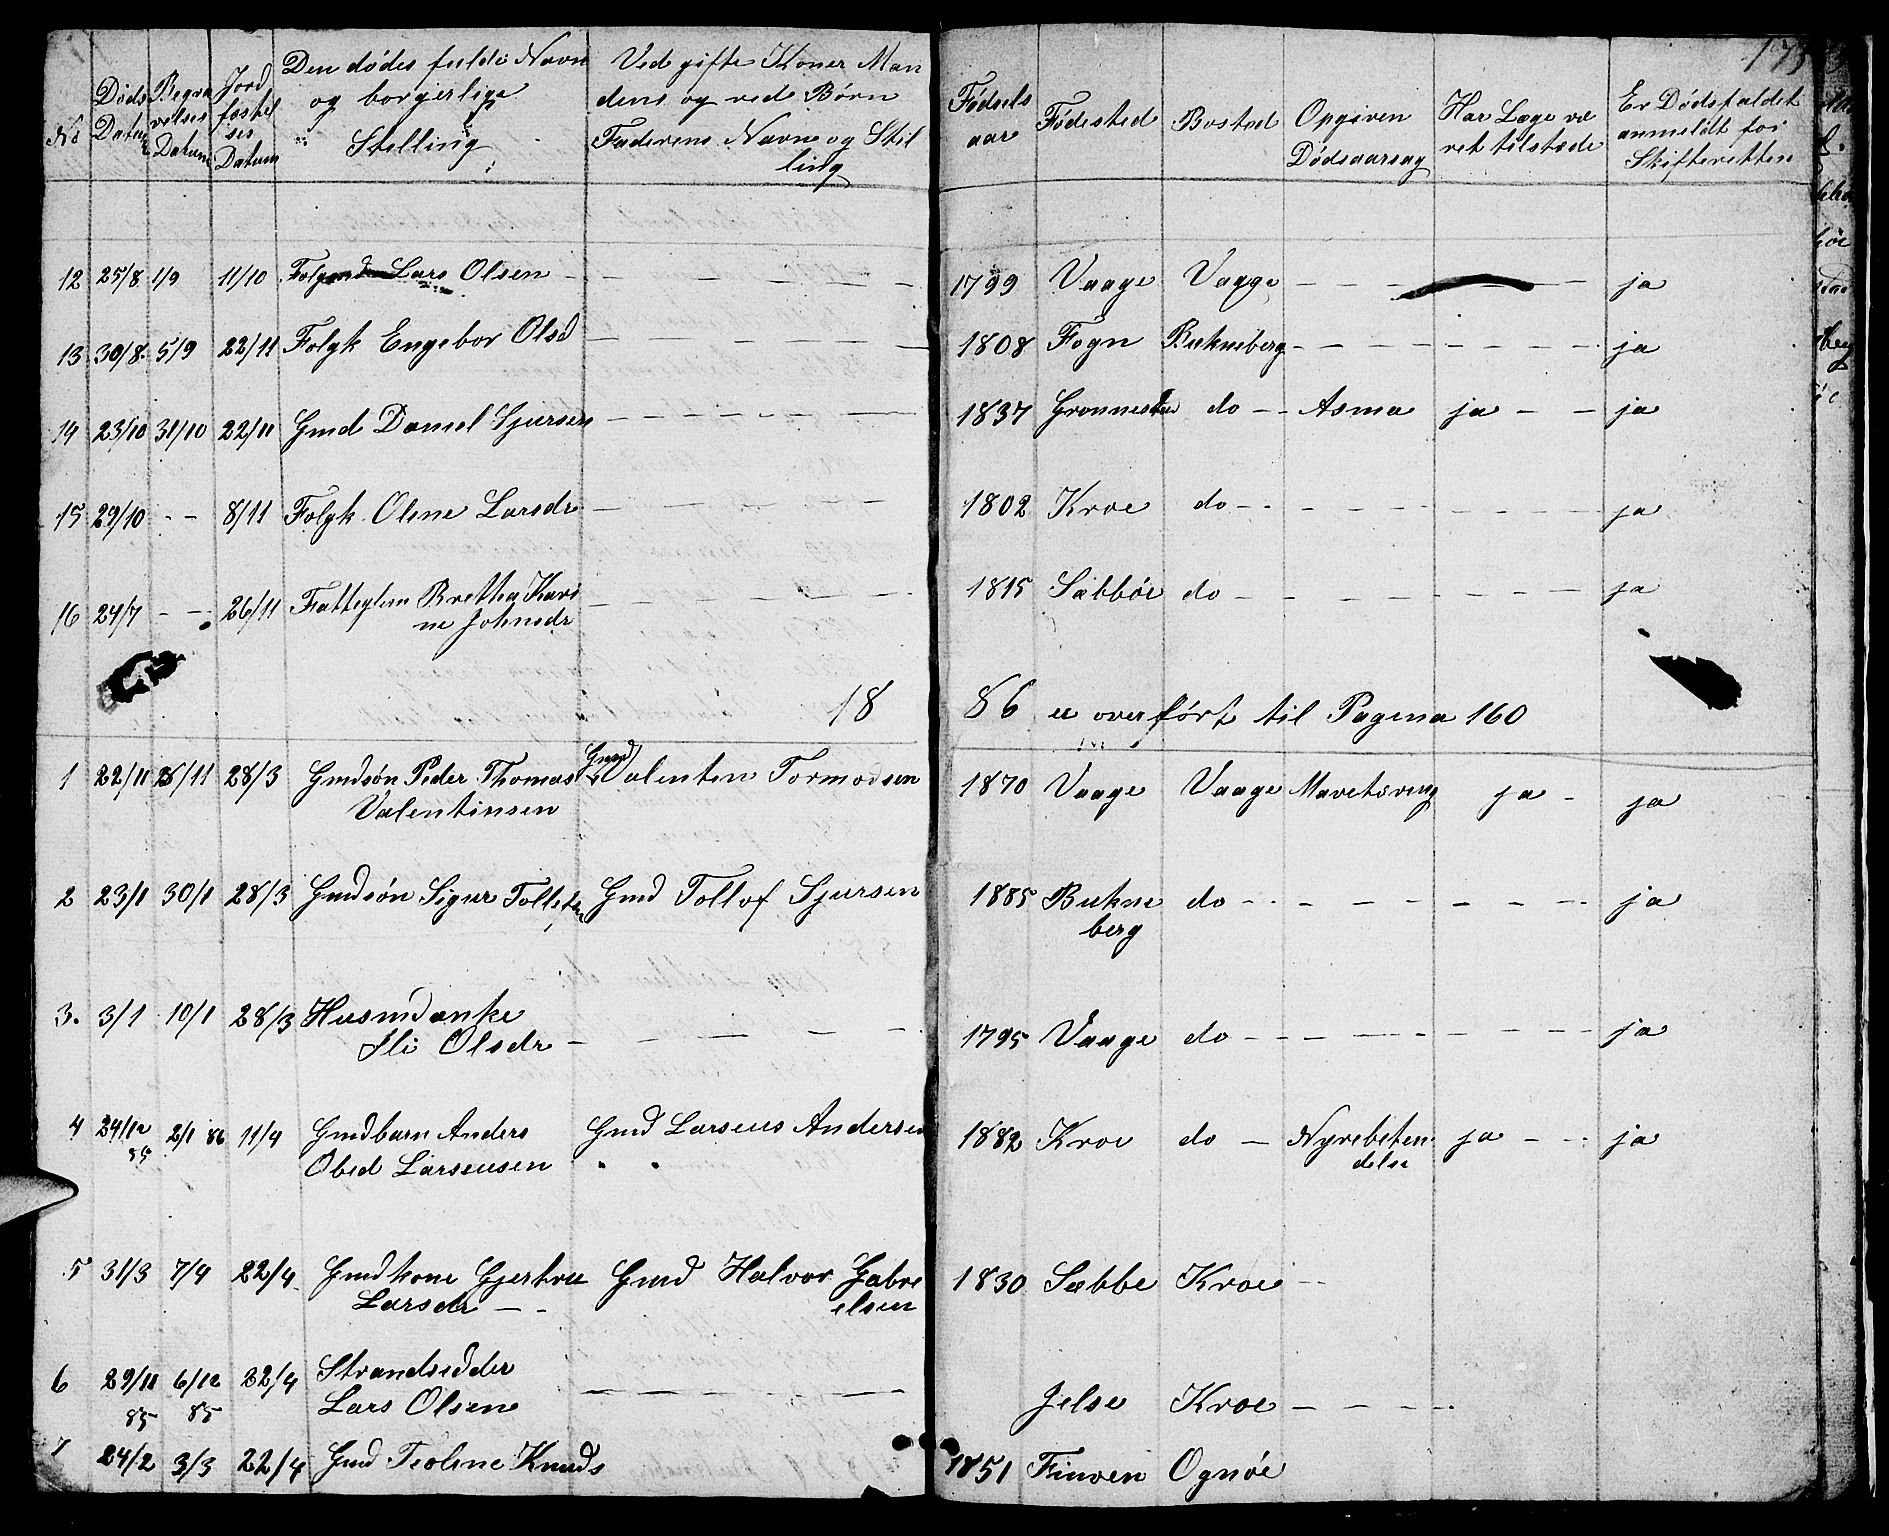 173
No
Døds Datum
Begravelses Datum
Jordfæstelses Datum
Den dødes fulde Navn og borgerlige Stelling
Ved gifte Koner Mandens og ved Børn Faderens Navn og Stilling
Fødsels aar
Fødested
Bosted
Opgiven Dødsaarsag
Har Læge været tilstede
Er Dødsfaldet anmeldt for Skifteretten
12 25/8 1/9 11/10 Lars Olsen — — — 1799 Vaage Vaage — — — ja
13 30/8 5/9 22/11 Folgk Engebor Olsd — — — 1808 Fogn Bukneberg — — — ja
14 23/10 31/10 22/11 Gmd Daniel Sjursen — — — 1837 do — Asma ja — ja
15 29/10 - - 8/11 Folgk Oline Larsdr — — — 1802 Kroe do — — — ja
16 24/7 - - 26/11 Fattiglem Bretha Kari
ne Johnsdr — — — 1815 Sæbbøe do — — — ja
18 86 er overført til Pagina 160
1 22/11 26/11 28/3 Gmdsøn Peder Thomas Gmd Valenten Tormodsen 1870 Vaage Vaage ja - ja
Valentinsen
2 23/1 30/1 28/3 Gmdsøn Sigur Gmd Tollof Sjursen 1885 Bukne do — — — ja
berg
3. 3/1 10/1 28/3 Husmdenke
Ili Olsdr — — — 1795 Vaage do — — — ja
4 24/12 2/1 86 11/4 Gmdbarn Anders Gmd Larseus Andersen 1882 Kroe do — Nyrebeten ja - - ja
85 Obed Larseusen " " delse
5 31/3 7/4 22/4 Gmdkone Gjertru Gmd Halvor Gabre 1830 Sæbbe Kroe - -
Larsdr — - elsen
6 29/11 6/12 22/4 Strandsedder
85 85 Lars Olsen — — — Jelse Kroe — — —
7 24/2 3/3 22/4 Gmd Teoline Knuds 1851 Finven Ognøe